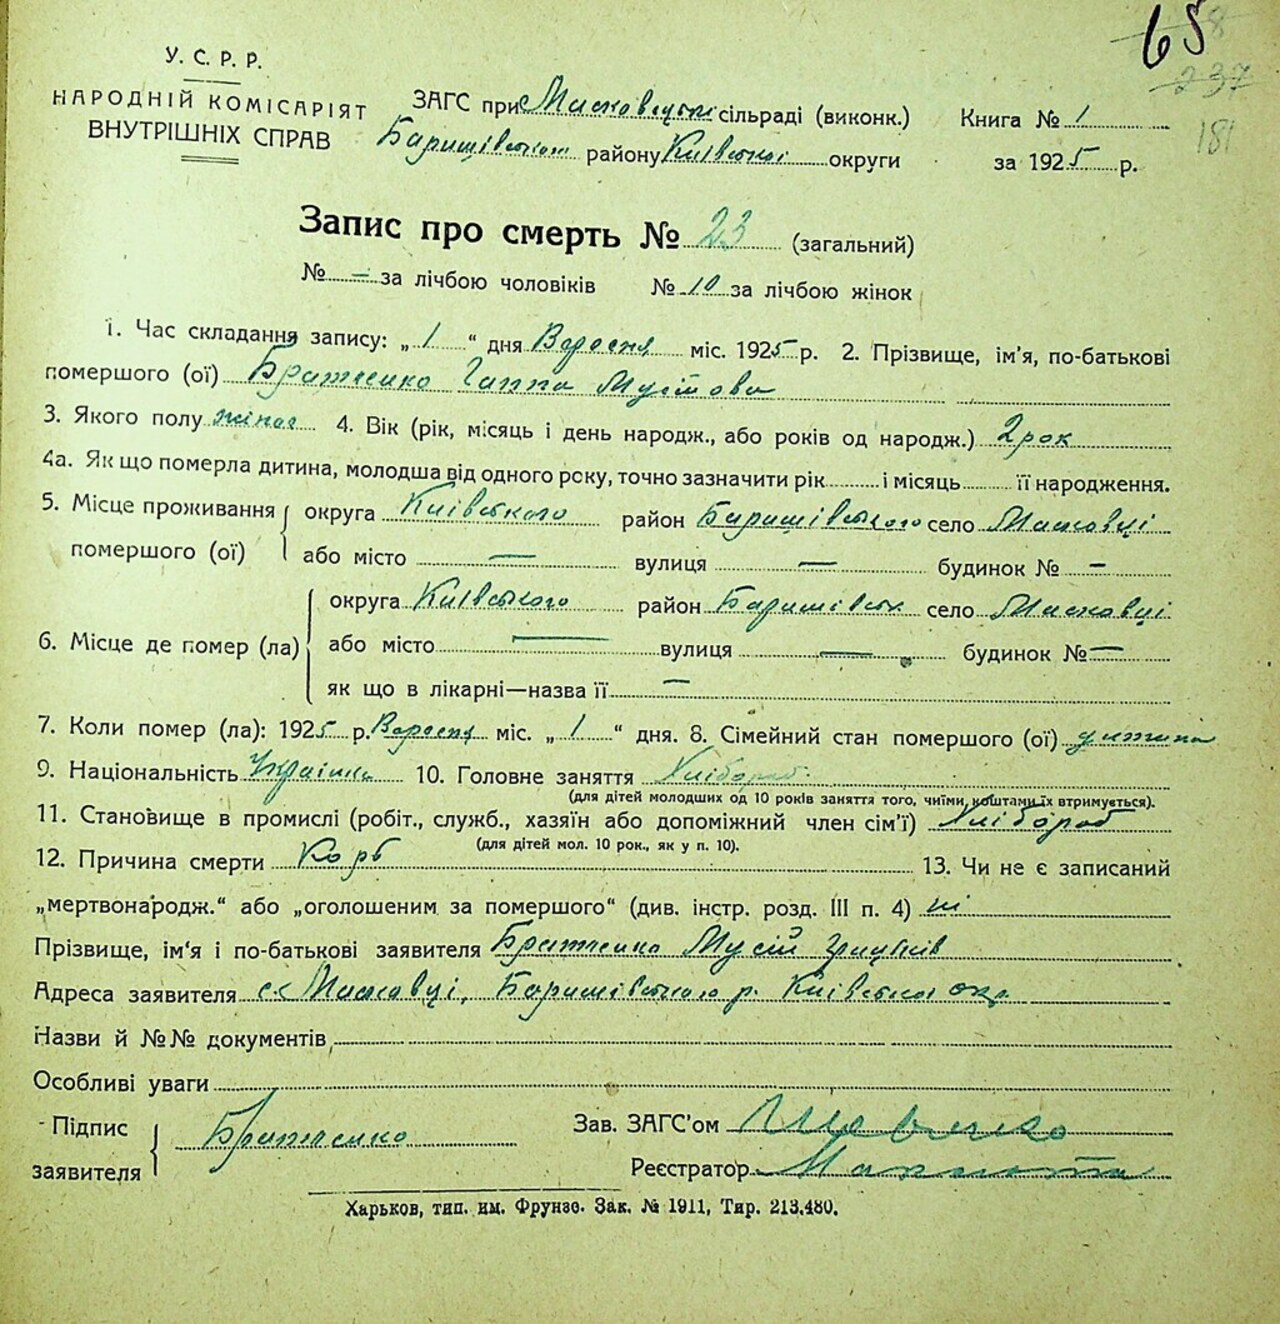 65
237
181
У. С. Р. Р.
НАРОДНІЙ КОМІСАРІЯТ
ВНУТРІШНІХ СПРАВ
ЗАГС при Масковецькі сільраді (виконк.)
Баришівськом району Київської округи
Книга № 1
за 1925 р.
Запис про смерть № 23 (загальний)
№ — за лічбою чоловіків № 10 за лічбою жінок
1. Час складання запису: „1“ дня Вересня міс. 1925 р. 2. Прізвище, ім'я, по-батькові
помершого (ої) Братченко Ганна Мусіїова
3. Якого полу жіноч 4. Вік (рік, місяць і день народж., або років од народж.) 2 рок
4а. Як що померла дитина, молодша від одного року, точно зазначити рік і місяць її народження.
5. Місце проживання помершого (ої) округа Київського район Баришівського село Масковці
або місто — вулиця — будинок № —
6. Місце де помер (ла) округа Київського район Баришівськ село Масковці
або місто — вулиця — будинок № —
як що в лікарні—назва її —
7. Коли помер (ла): 1925 р. Вересня міс. „1“ дня. 8. Сімейний стан помершого (ої) дитина
9. Національність Українка 10. Головне заняття Хлібороб
(для дітей молодших од 10 років заняття того, чиїми коштами їх втримується).
11. Становище в промислі (робіт., служб., хазяїн або допоміжний член сім'ї) Хлібороб
(для дітей мол. 10 рок., як у п. 10).
12. Причина смерти Корь 13. Чи не є записаний
„мертвонародж.“ або „оголошеним за помершого“ (див. інстр. розд. III п. 4) ні
Прізвище, ім'я і по-батькові заявителя Братченко Мусій Грицьків
Адреса заявителя с. Масковці, Баришівського р. Київської окр.
Назви й №№ документів
Особливі уваги
Підпис заявителя Братченко
Зав. ЗАГС'ом Шевченко
Реєстратор
Харьков, тип. им. Фрунзе. Зак. № 1911, Тир. 213.480.